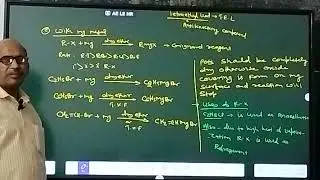 Tetraethyl lead → T.E.L
Antiknocking compound
② With Mg metal
R-X + Mg dry ether → RMgX → Grignard reagent
C2H5Br + Mg dry ether → C2H5MgBr
C6H5Br + Mg dry ether → C6H5MgBr
T.H.F
CH2=CH-Br + Mg dry ether → CH2=CHMgBr
T.H.F
Pots should be completely
dry otherwise oxide
covering is form on Mg
surface and reaction will
stop
Uses of R-X
is used as Anaesthetic
Also due to high heat of vapori-
zation R-X is used as
Refrigerant